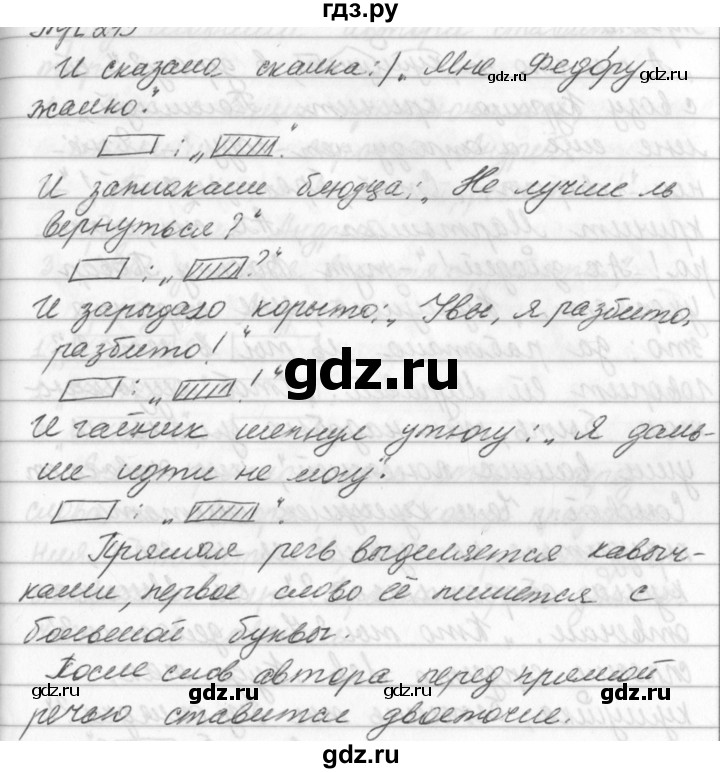 гдз.ру
И сказала скалка: „Мне Федору
жалко“.
: „ “.
И заплакали блюдца: „Не лучше ль
вернуться?“
: „ ?“
И зарыдало корыто: „Увы, я разбито,
разбито!“
gdz.ru
: „ !“
И чайник шепнул утюгу: „Я даль-
ше идти не могу“.
: „ “.
Прямая речь выделяется кавыч-
ками, первое слово её пишется с
большой буквы.
После слов автора перед прямой
gdz.ru gdz.ru gdz.ru
речью ставится двоеточие.
gdz.ru